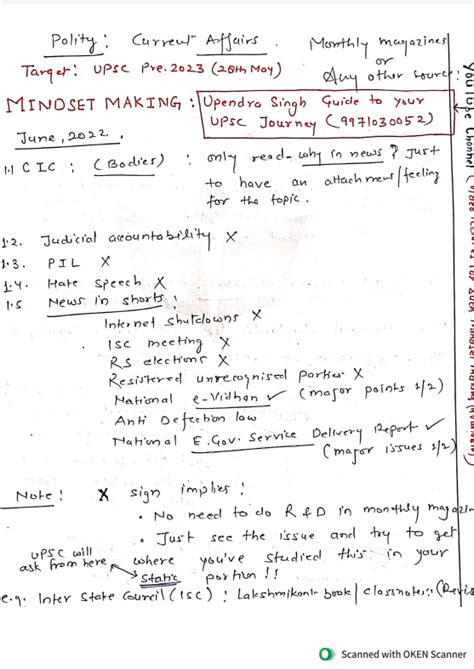 Polity: Current Affairs. Monthly magazines
or
Target: UPSC Pre. 2023 (28th May) Any other source:
MINDSET MAKING: Upendra Singh Guide to your
UPSC Journey (9971030052)
June, 2022.
1.1 CIC: (Bodies): only read - why in news? Just
to have an attachment/feeling
for the topic.
1.2. Judicial accountability X
1.3. PIL X
1.4. Hate Speech X
1.5 News in shorts:
Internet Shutdowns X
ISC meeting X
RS elections X
Registered unrecognised parties X
National e-Vidhan ✓ (major points 1/2)
Anti Defection law
National E. Gov. Service Delivery Report ✓
(major issues 1/2)
Note: X sign implies:
• No need to do R & D in monthly magazin
• Just see the issue and try to get
UPSC will
ask from here
where you've studied this in your
static portion!!
e.g. Inter State Council (ISC): Lakshmikant book/classnotes: (Revis
You Tube Channel
Scanned with OKEN Scanner